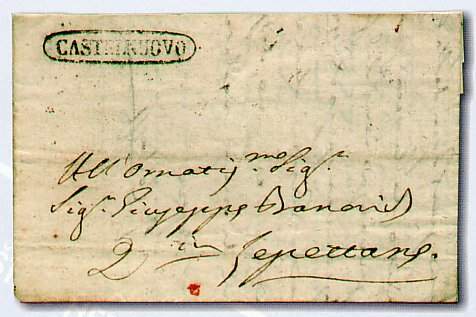 CASTELNUOVO
All' Ornatis.mo Sig.r
Sig.r Giuseppe
2 in